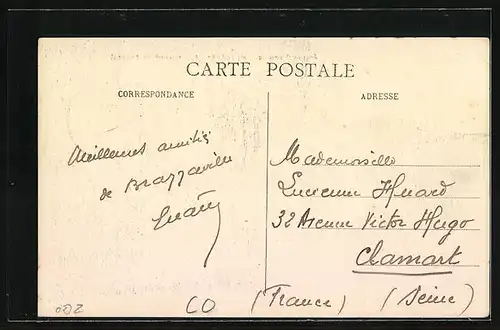 CARTE POSTALE
CORRESPONDANCE
ADRESSE
Meilleures amitiés
de Brazzaville
Mademoiselle
Lucienne Huard
32 Avenue Victor Hugo
Clamart
(France) (Seine)
CO